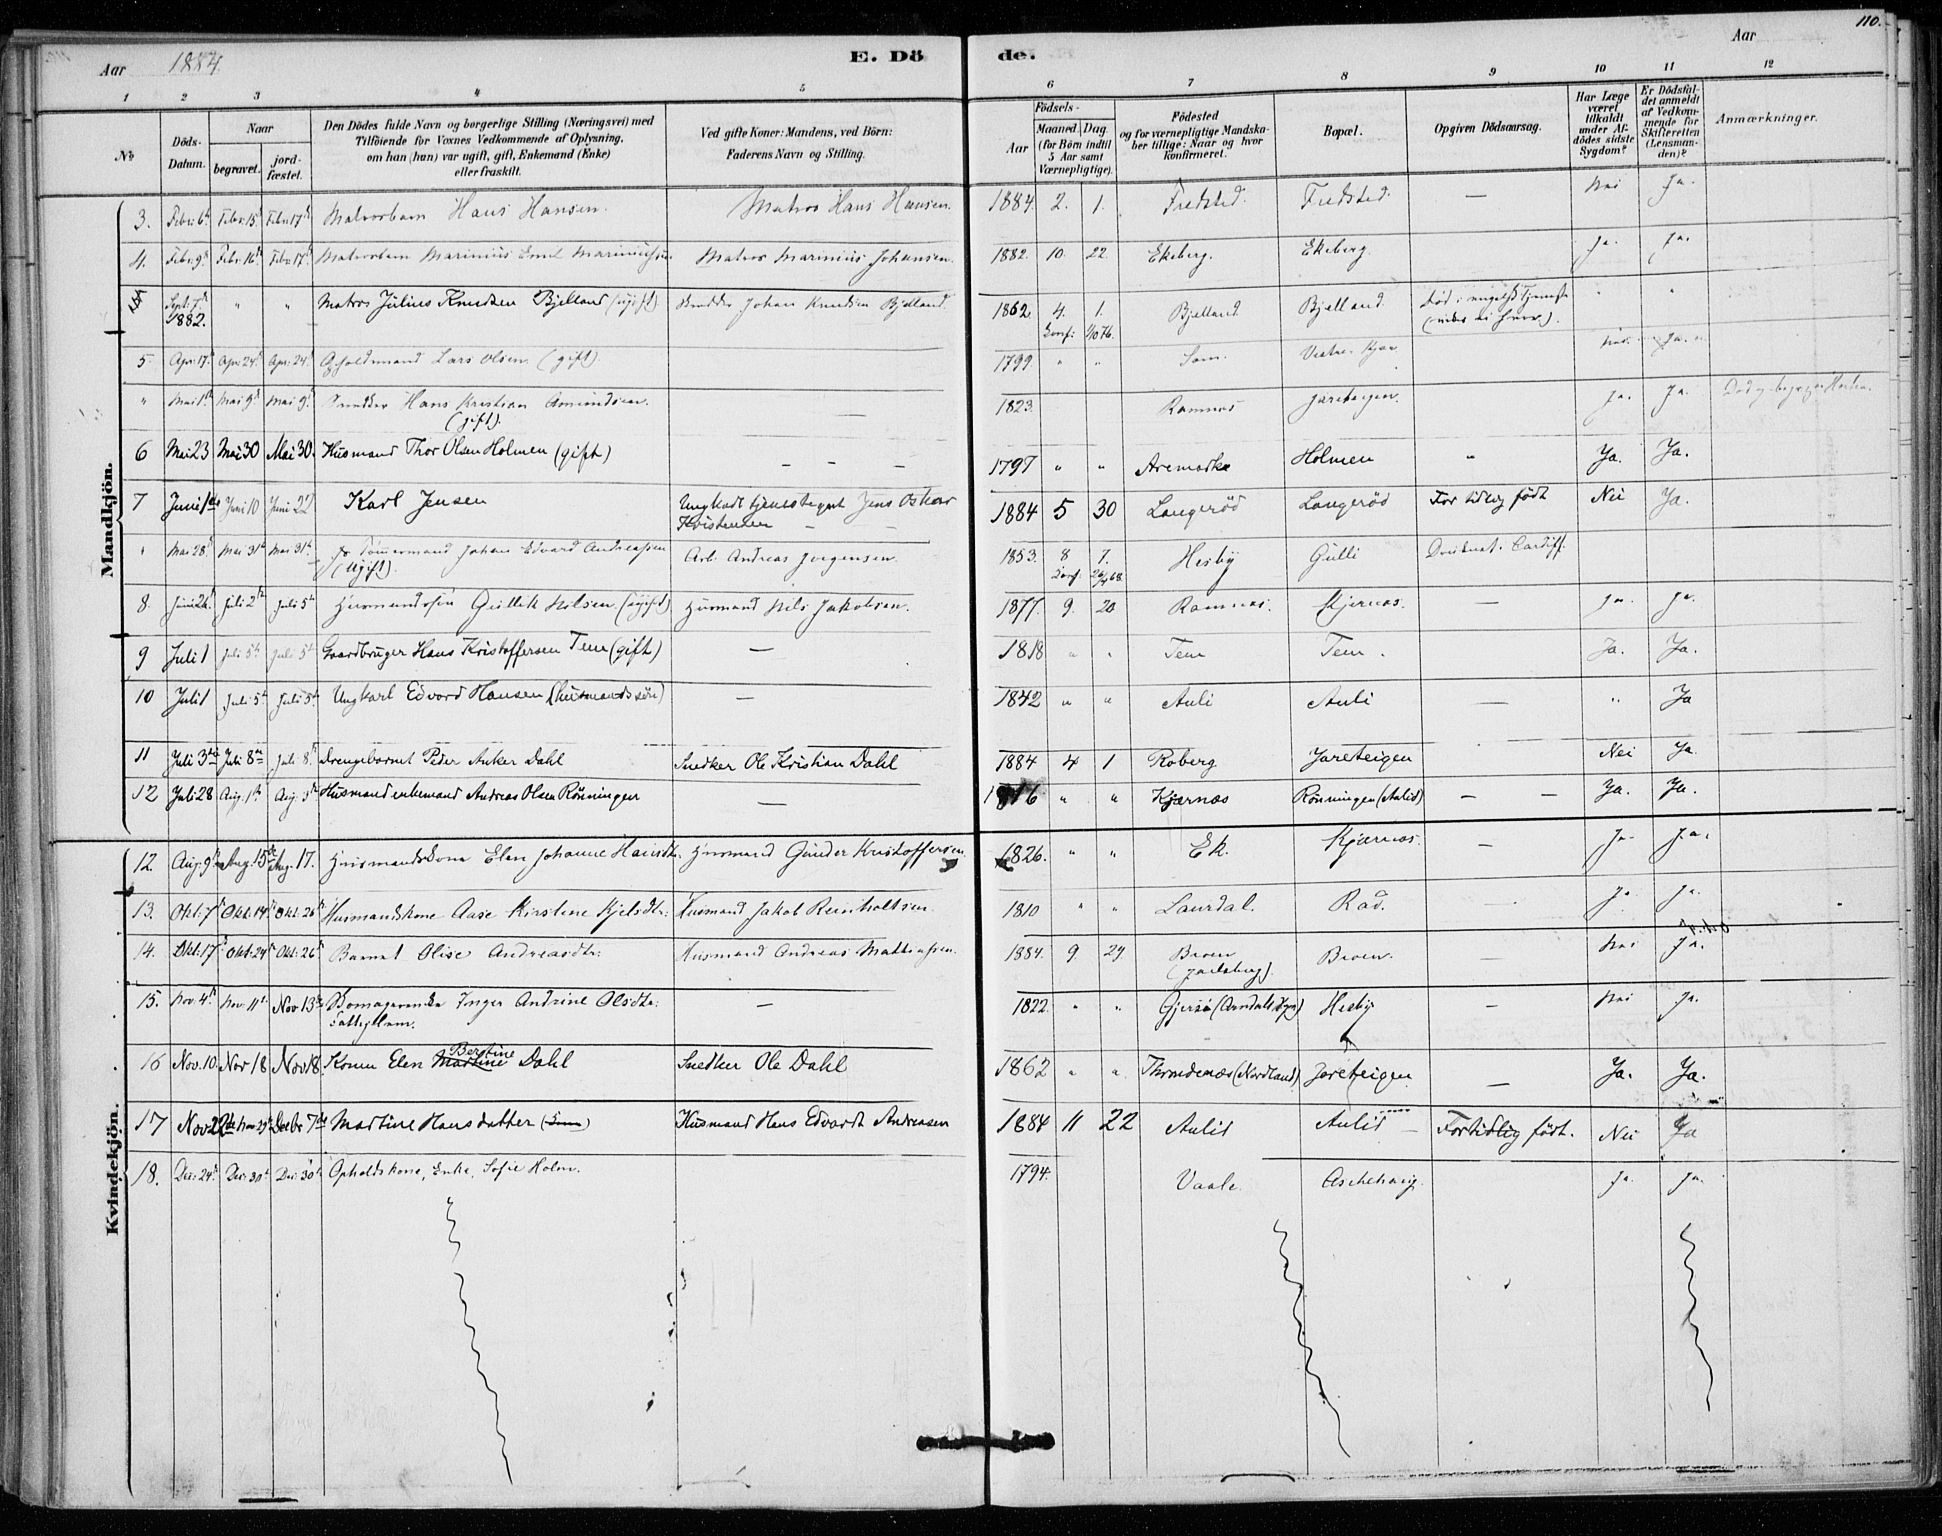 110.
Aar 1884. E. Dö de. Aar
1 2 3 4 5 6 7 8 9 10 11 12
No
Döds-Datum.
Naar
begravet. jordfæstet.
Den Dödes fulde Navn og borgerlige Stilling (Næringsvei) med
Tilföiende for Voxnes Vedkommende af Oplysning,
om han (hun) var ugift, gift, Enkemand (Enke)
eller fraskilt.
Ved gifte Koner: Mandens, ved Börn:
Faderens Navn og Stilling.
Födsels-
Aar
Maaned. Dag.
(for Börn indtil
5 Aar samt
Værnepligtige).
Födested
og for værnepligtige Mandskaber
tillige: Naar og hvor
konfirmeret.
Bopæl.
Opgiven Dödsaarsag.
Har Læge
været
tilkaldt
under Afdödes
sidste
Sygdom?
Er Dödsfaldet
anmeldt
af Vedkommende
for
Skifteretten
(Lensmanden)?
Anmærkninger.
Mandkjön.
3. Febr: 6t Febr: 15d Febr: 17d Matrosbarn Hans Hansen. Matros Hans Hansen. 1884. 2. 1. Fredsted. Fredsted. — Nei Ja.
4. Febr: 9d Febr: 16d Febr: 17d Matrosbarn Marinius Emil Mariniussen Matros Marinius Johansen. 1882. 10. 22. Ekeberg. Ekeberg. Ja. Ja.
Sept: 7d 1882. " " Matros Julius Knudsen Bjelland (ugift) Snedker Johan Knudsen Bjelland. 1862. 4. 1. Bjelland. Bjelland. Död i engelsk Tjeneste
Konf: 1/10 76. (vides ei hvor).
5 Apr: 17d Apr: 24d Apr: 24d Opholdsmand Lars Olsen. (gift). 1799. " " Sem. Vestre Kjær Nei. Ja.
" Mai 1d Mai 9d Mai 9d Snedker Hans Kristian Amundsen. — 1823. Ramnes Jareteigen. Ja. Ja. Död og begr. paa Horten.
(gift).
6 Mai 23 Mai 30 Mai 30. Husmand Thor Olsen Holmen (gift) — — — 1797 " " Aremarke Holmen " Ja. Ja.
7 Juni 1ste Juni 10 Juni 22 Karl Jensen Ungkarl tjenestegut Jens Oskar 1884 5 30 Langeröd Langeröd For tidlig födt Nei Ja.
Kristensen
" Mai 28d Mai 31d Mai 31d Tömmermand Johan Edvard Andreassen Arb. Andreas Jorgensen. 1853. 8 7. Hesby Gulli Druknet. Cardiff.
(Ugift). Konf: 68.
8. Juni 26d Juli 2d Juli 5d Husmandssön Gullik Nilsen. (ugift) Husmand Nils Jakobsen. 1877. 9. 20 Ramnes. Kjernæs. — Ja. Ja.
9 Juli 1 Juli 5d Juli 5d Gaardbruger Hans Kristoffersen Tem (gift) — 1818 " " Tem Tem. Ja. Ja.
10 Juli 1 Juli 5d Juli 5d Ungkarl Edvard Hansen (husmandssön) — 1842 " " Auli Auli — " Ja
11 Juli 3die Juli 8de Juli 8d Drengebarnet Peder Anker Dahl Snedker Ole Kristian Dahl 1884 4 1 Roberg Jareteigen Nei Ja.
12 Juli 28 Aug. 1d Aug. 3d Husmand enkemand Andreas Olsen Rönningen — 1816 " " Kjærnæs Rönningen (Aulid) — — Ja. Ja.
Kvindekjön.
12. Aug: 9d Aug. 15d Aug. 17. Husmandskone Elen Johanne Hansdtr: Husmand Gunder Kristoffersen. 1826. " " Ek. Kjærnæs. — Ja. Ja.
13. Okt: 7d Okt: 14d Okt: 26d Husmandskone Aase Kirstine Kjelsdtr: Husmand Jakob Reinholtsen. 1810 " " Laurdal. Rad. Ja. Ja.
14. Okt: 17d Okt: 24d Okt: 26d Barnet Olise Andreasdtr: Husmand Andreas Mathiassen. 1884. 9. 29. Broen Broen. — Nei Ja.
(Jarlsberg).
15. Nov. 4d Nov: 11d Nov 13de Inger Andrine Olsdtr: — 1822. " " Hesby — Nei Ja.
Fattiglem.
16 Nov. 10 Nov 18 Nov 18 Konen Elen Martine Bertine Dahl Snedker Ole Dahl 1862 " " Throndenæs (Nordland) Jareteigen — Ja. Ja.
17 Nov 22de Nov 29d Decbr 7de Martine Hansdatter Husmand Hans Edvardt Andreasen 1884 11 22 Aulid Aulid — For tidlig födt. Nei Ja
18. Dec: 24d Dec: 30d Dec: 30d Opholdskone, Enke, Sofie Holm. 1794. Vaale. Aschehaug. Ja. Ja.